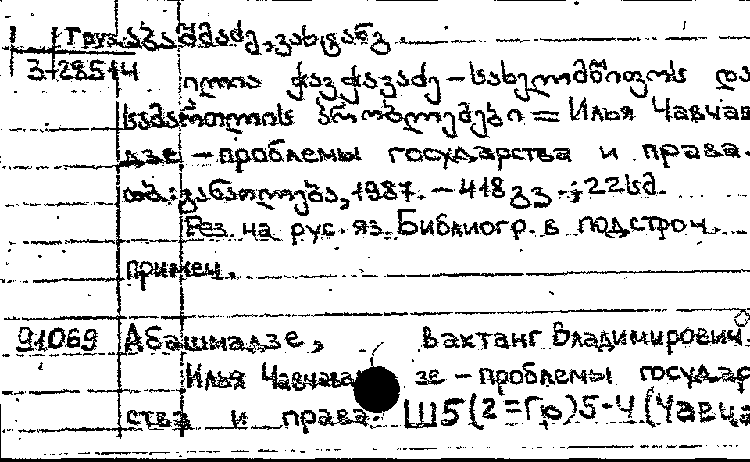 Груз. აბაშმაძე, ვახტანგ
3-28514 ილია ჭავჭავაძე – სახელმწიფოს და
სამართლის პრობლემები = Илья Чавчав
дзе – проблемы государства и права.
თბ.: განათლება, 1987. – 418 გვ.; 22 სმ.
Рез. на рус. яз. Библиогр. в подстроч.
примеч.
91069 Абашмадзе, Вахтанг Владимирович.
Илья Чавчава зе – проблемы государ
ства и права. Ш5(2=Гр)5-4(Чавча